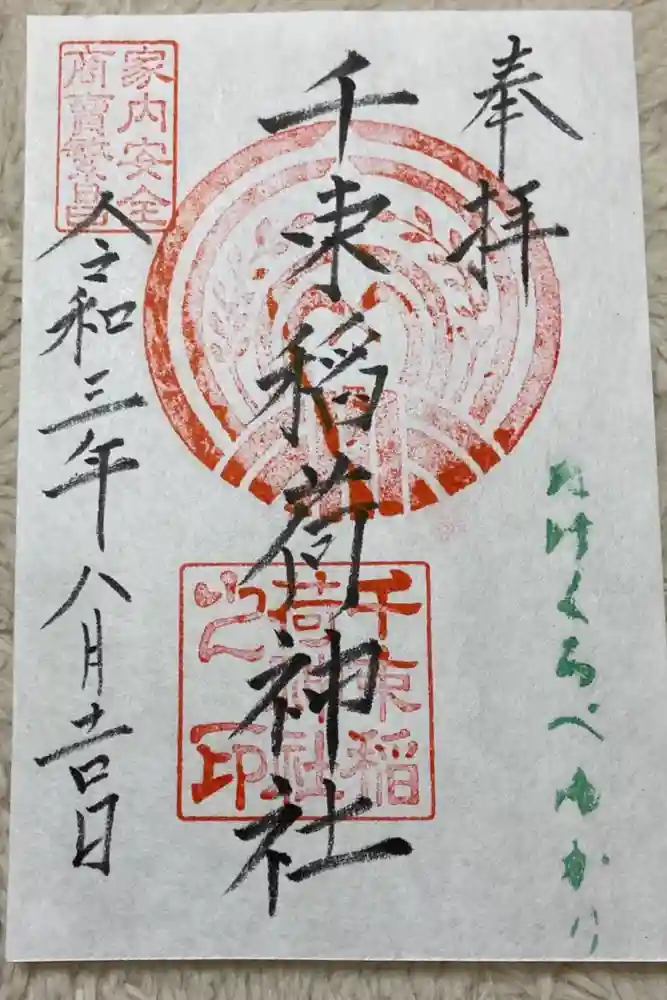 奉拝
たけくらべゆかり
千束稲荷神社
千束稲
荷神社
之印
家内安全
商賣繁昌
令和三年八月吉日